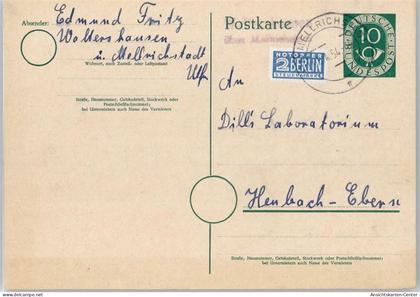 Absender:
Edmund Fritz
Wolfershausen
ü. Mellrichstadt
Wohnort, auch Zustell- oder Leitpostamt
Ufr.
Straße, Hausnummer, Gebäudeteil, Stockwerk oder
Postschließfachnummer;
bei Untermietern auch Name des Vermieters
Postkarte
MELLRICHS
NOTOPFER
2 BERLIN
STEUERMARKE
DEUTSCHE
10
BUNDESPOST
An
Dill's Laboratorium
Heubach-Ebern
Straße, Hausnummer, Gebäudeteil, Stockwerk oder Postschließfachnummer;
bei Untermietern auch Name des Vermieters
Ansichtskarten-Center